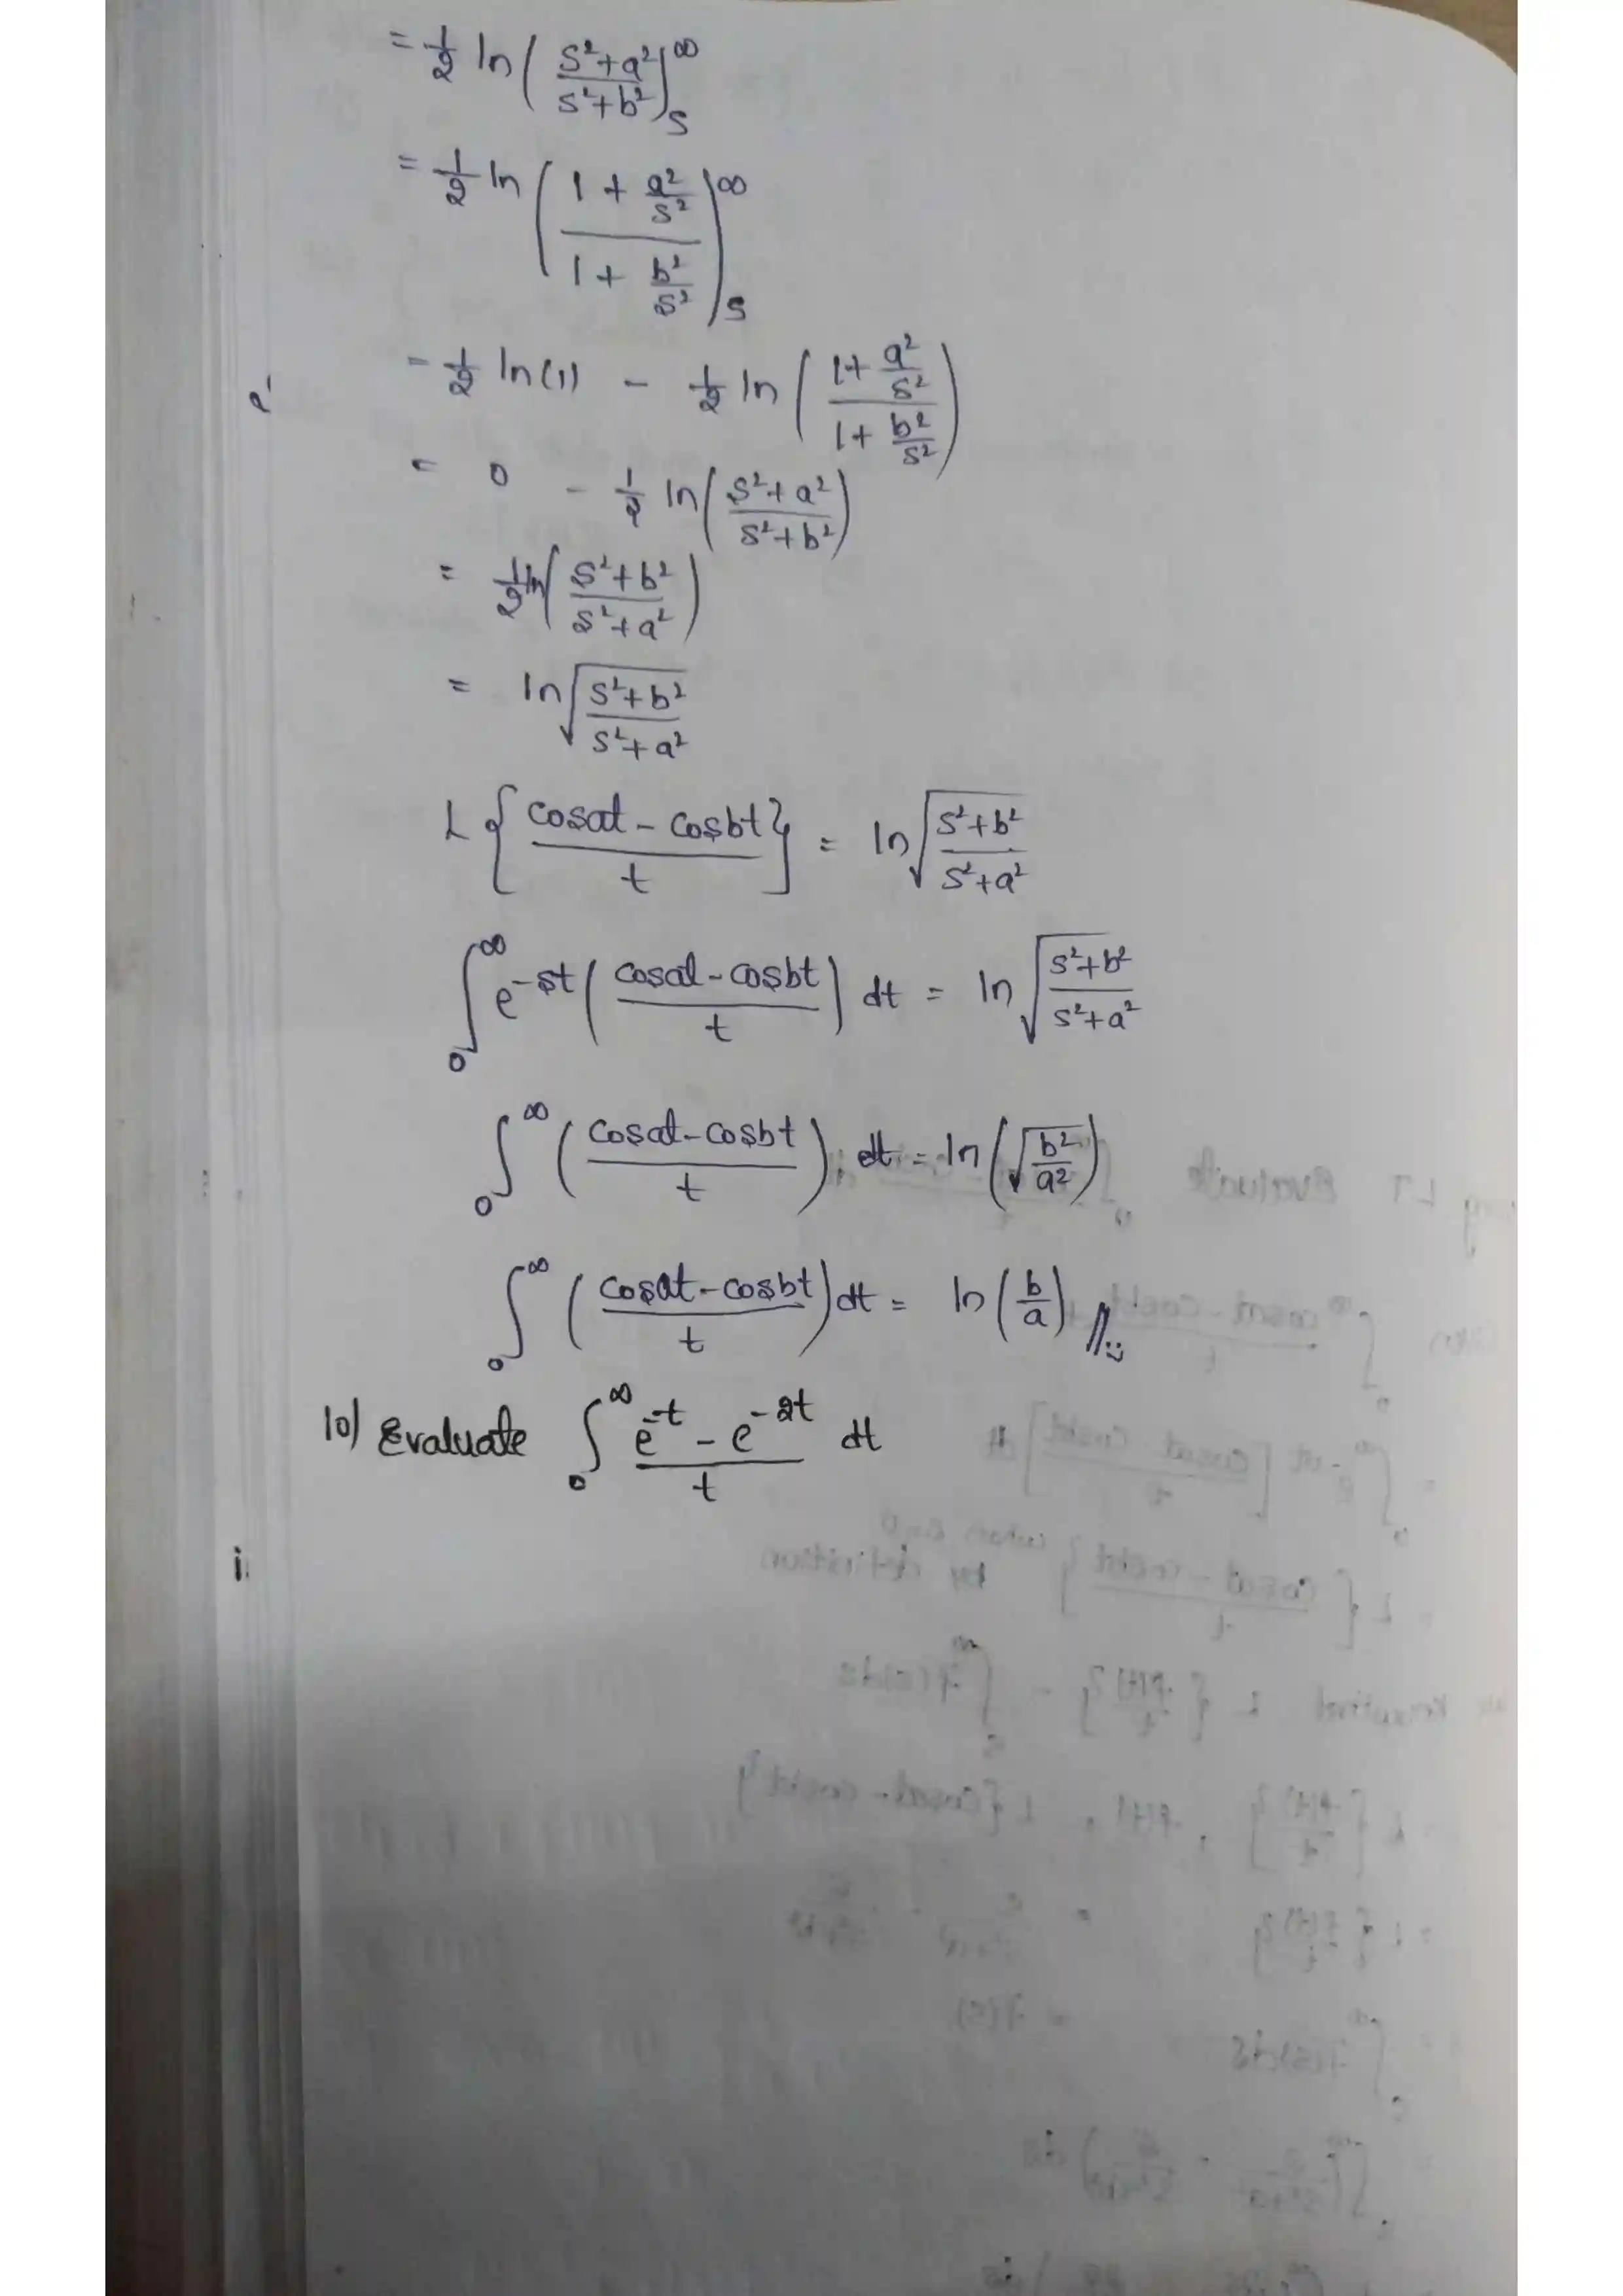 = 1/2 ln ( (s²+a²)/(s²+b²) )_s^∞
= 1/2 ln ( (1 + a²/s²)/(1 + b²/s²) )_s^∞
= 1/2 ln(1) - 1/2 ln ( (1 + a²/s²)/(1 + b²/s²) )
= 0 - 1/2 ln ( (s²+a²)/(s²+b²) )
= 1/2 ln ( (s²+b²)/(s²+a²) )
= ln √( (s²+b²)/(s²+a²) )
L { (cosat - cosbt)/t } = ln √( (s²+b²)/(s²+a²) )
∫_0^∞ e^-st ( (cosat - cosbt)/t ) dt = ln √( (s²+b²)/(s²+a²) )
∫_0^∞ ( (cosat - cosbt)/t ) dt = ln ( √(b²/a²) )
∫_0^∞ ( (cosat - cosbt)/t ) dt = ln ( b/a ) //
10) Evaluate ∫_0^∞ (e^-t - e^-2t)/t dt